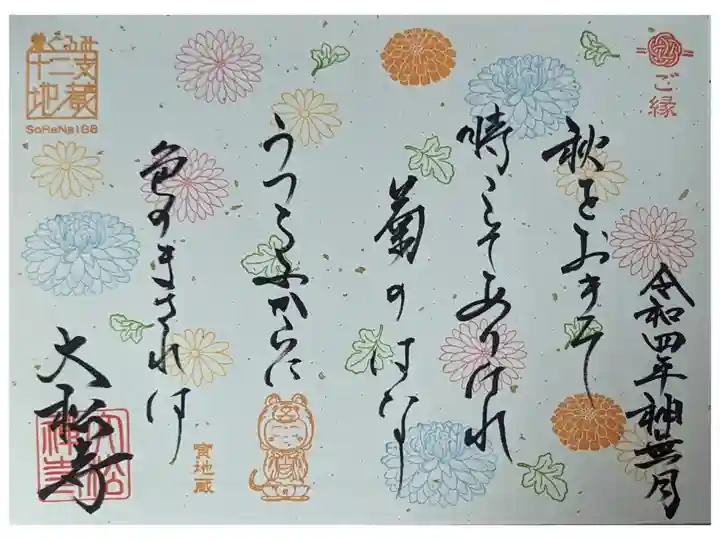 ご縁
令和四年神無月
秋をおきて
時こそありけれ
菊のはな
うつろふからに
色のまされは
大松寺
寅地蔵
着ぐるみ
十二支地蔵
大松禅寺